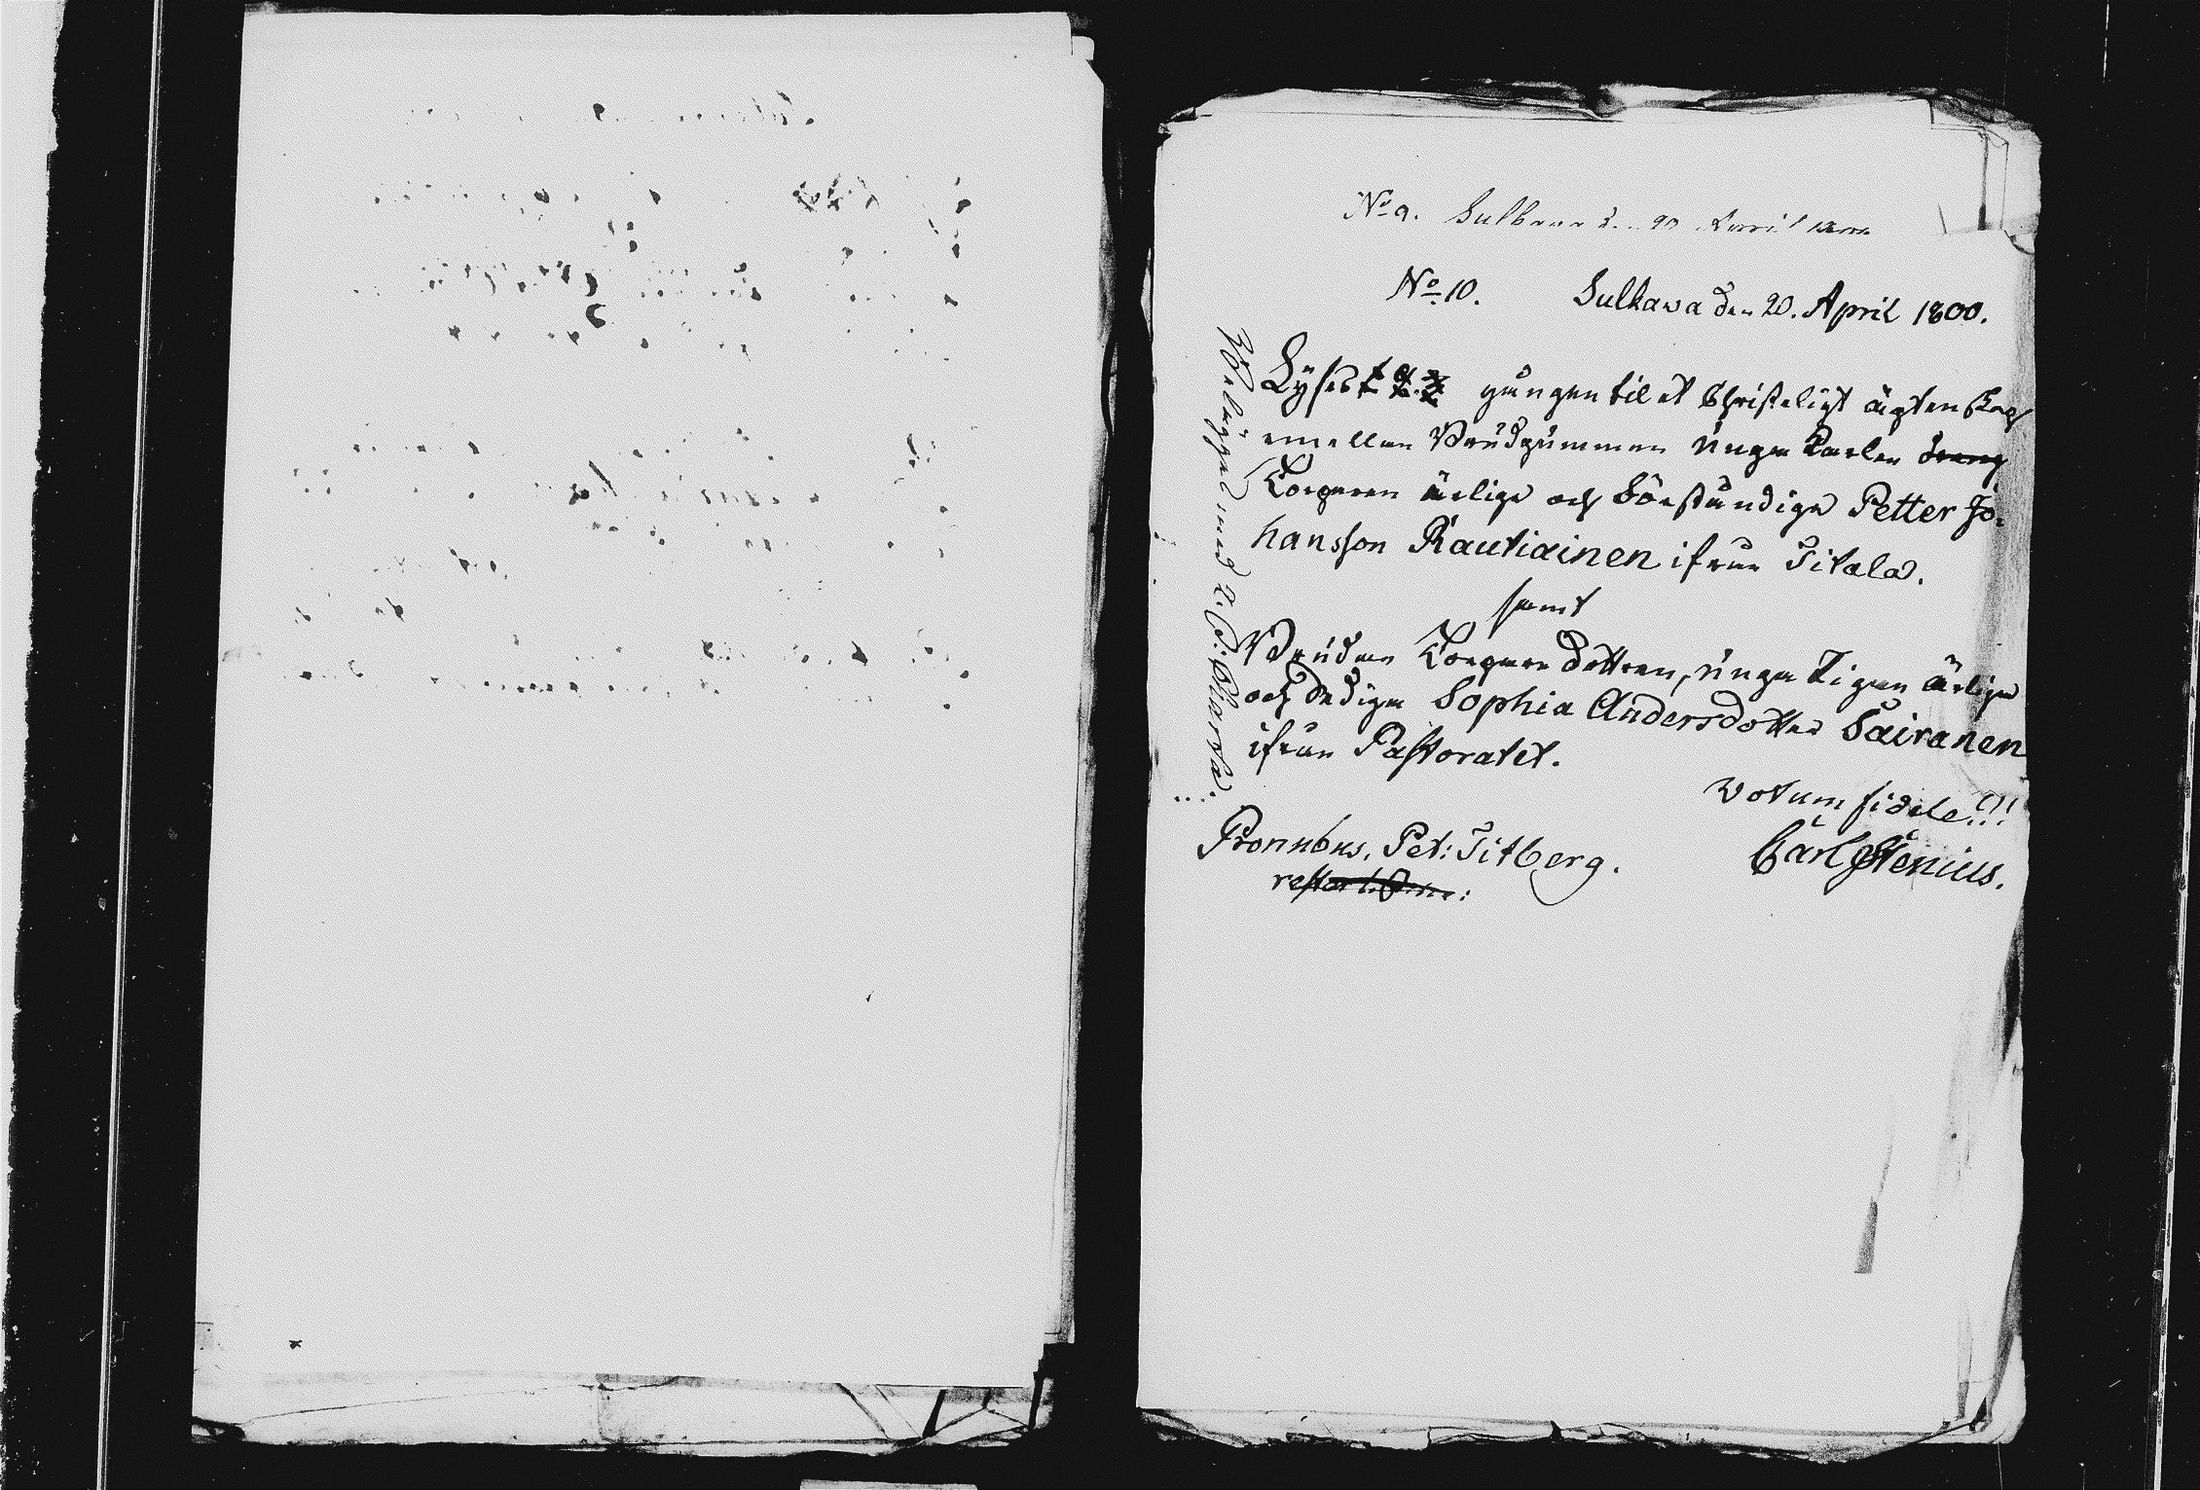 No 9. Sulkava d. 20 April 1800
No. 10. Sulkava den 20. April 1800.
Lyses gången til et Christeligt ägtenskap
emellan Brudgummen unga Karlen
Torparen ärlige och förståndige Petter Jo-
hansson Rautiainen ifrån Titala.
samt
Bruden Torpare dottren, unga Pigan ärliga
och dediga Sophia Andersdotter Sairanen
ifrån Pastoratet.
votum fidele!!!
Pronubus, Pet: Titberg. Carl Stenius.